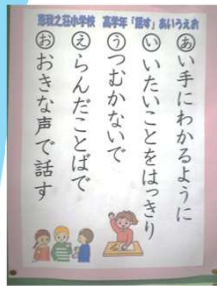 恵我之荘小学校 高学年「話す」あいうえお
あい手にわかるように
いいたいことをはっきり
うつむかないで
えらんだことばで
おおきな声で話す